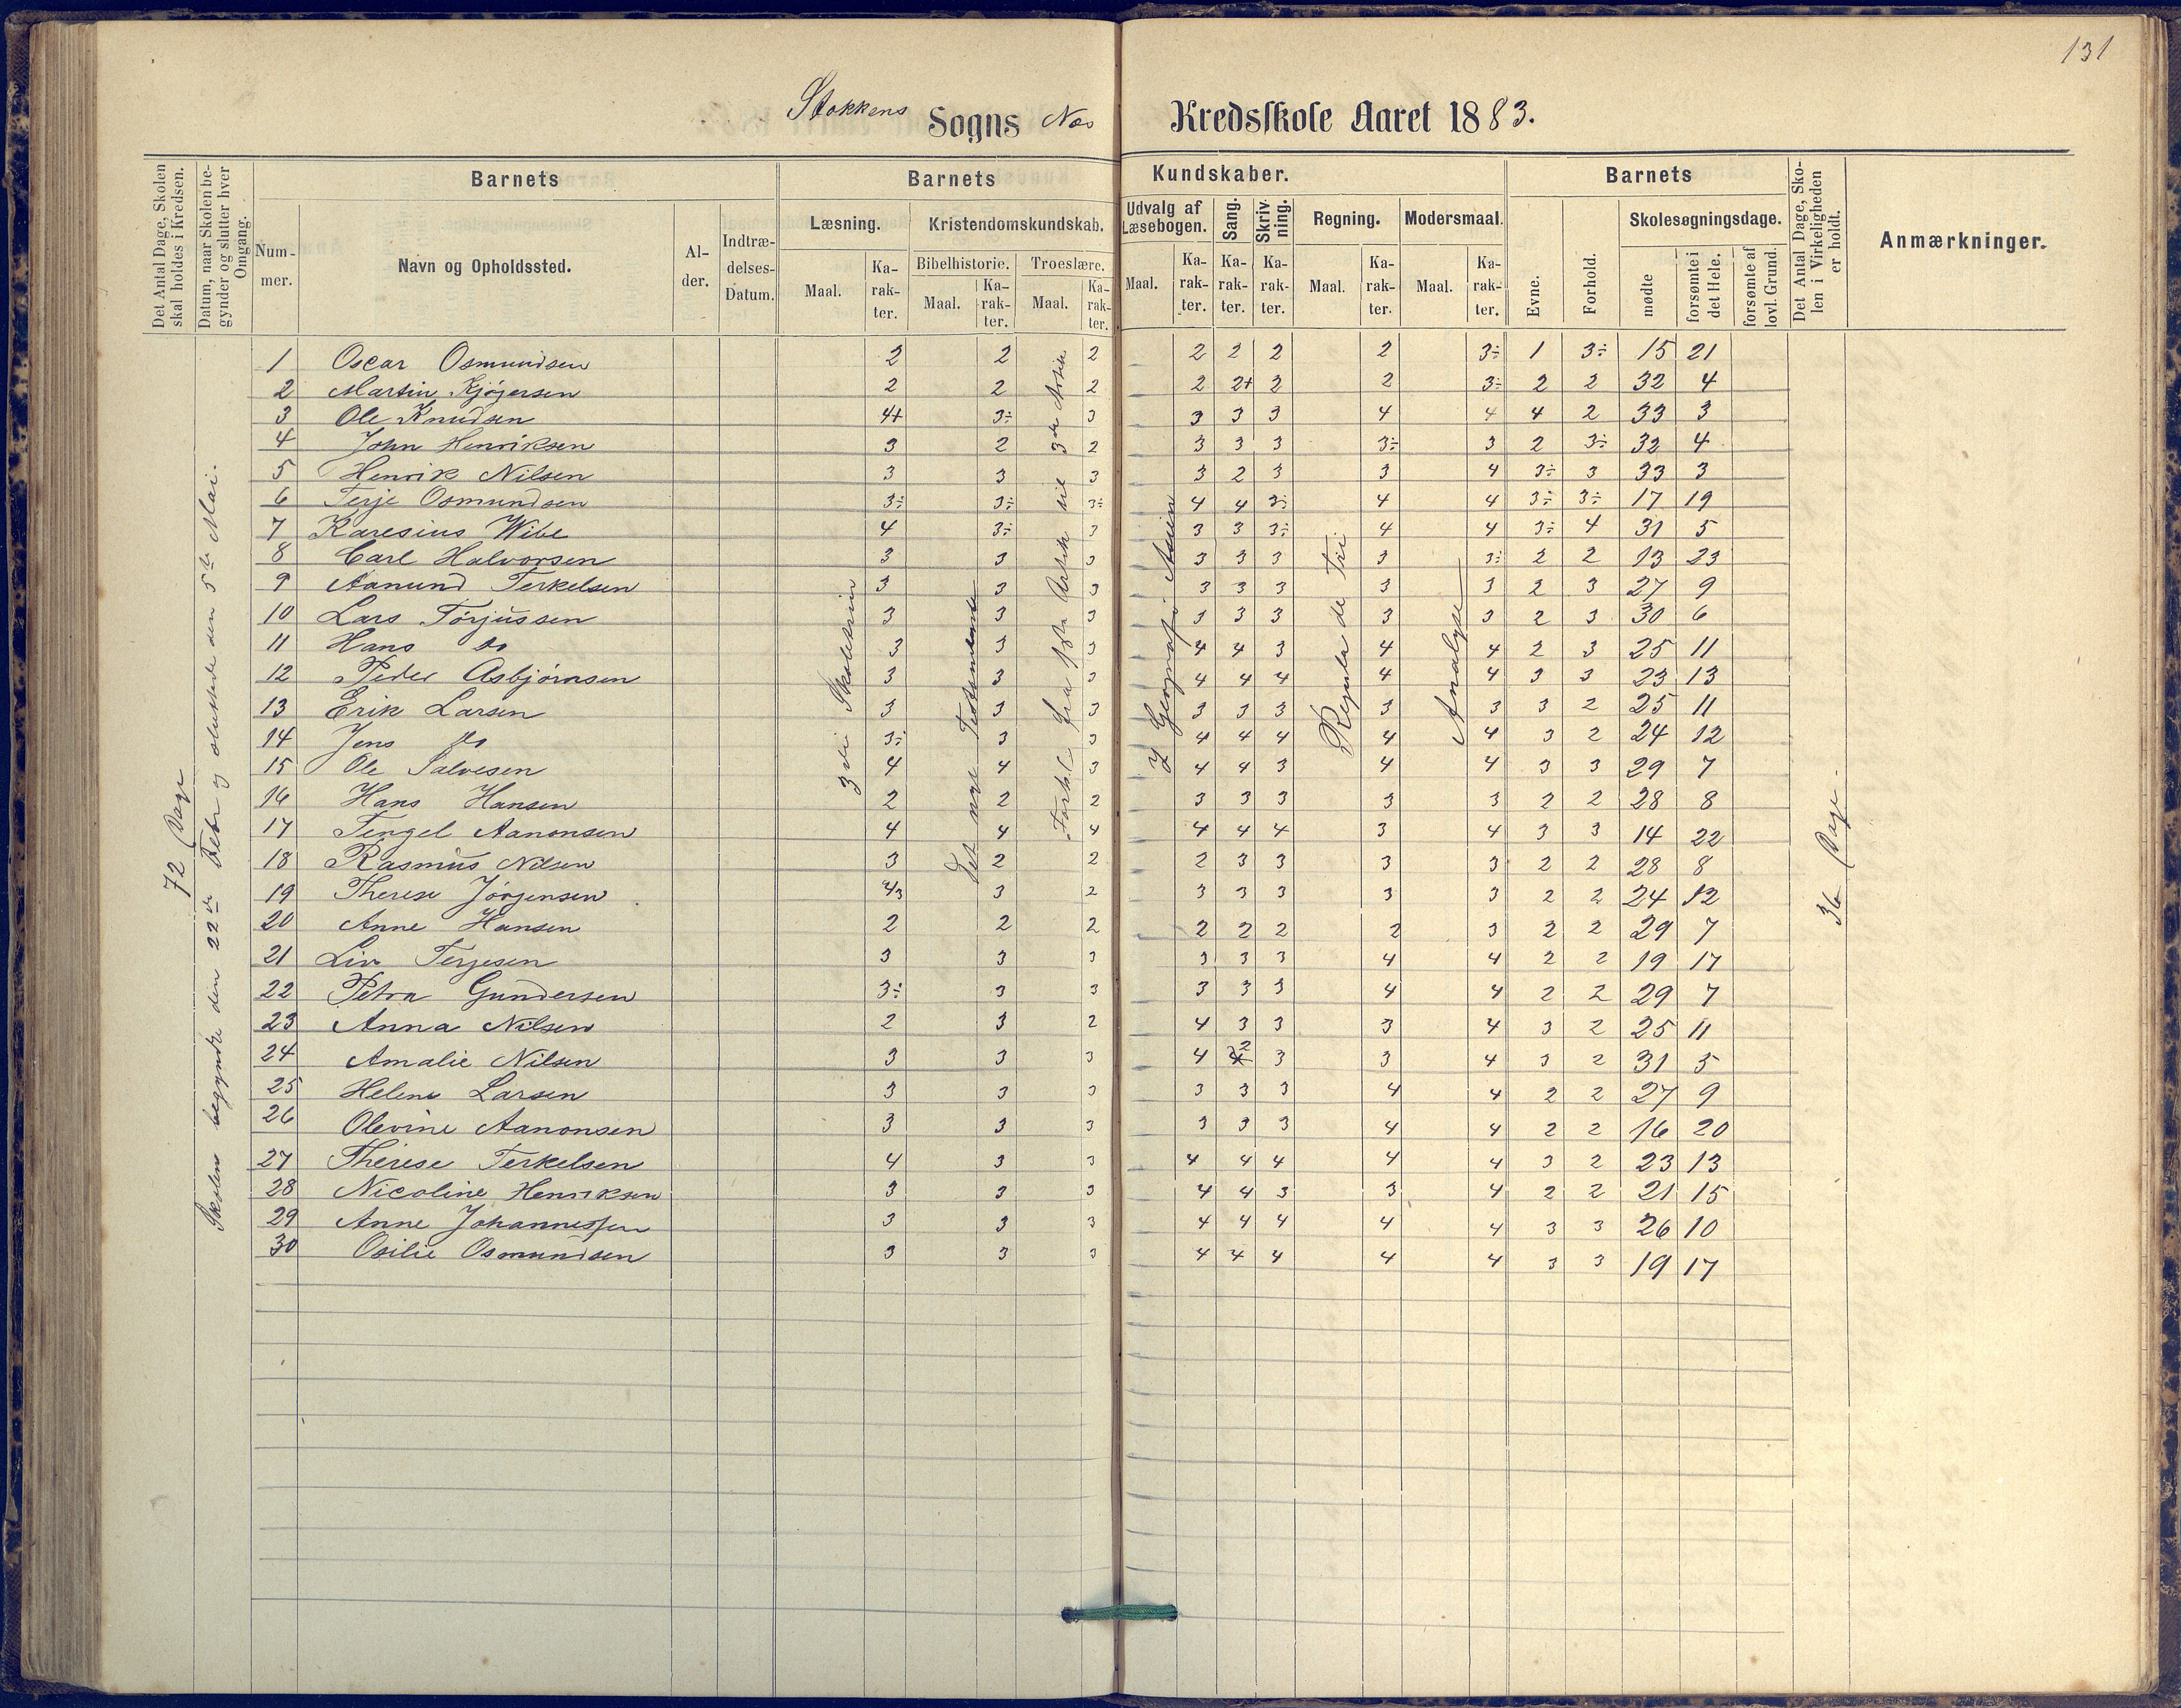 131
Stokkens Sogns Næs Kredsskole Aaret 1883.
Det Antal Dage, Skolen skal holdes i Kredsen.
Datum, naar Skolen begynder og slutter hver Omgang.
Barnets
Nummer.
Navn og Opholdssted.
Alder.
Indtrædelses-Datum.
Barnets Kundskaber.
Læsning.
Maal.
Karakter.
Kristendomskundskab.
Bibelhistorie.
Maal.
Karakter.
Troeslære.
Maal.
Karakter.
Udvalg af Læsebogen.
Maal.
Karakter.
Sang.
Karakter.
Skrivning.
Karakter.
Regning.
Maal.
Karakter.
Modersmaal.
Maal.
Karakter.
Barnets
Evne.
Forhold.
Skolesøgningsdage.
mødte
forsømte i det Hele.
forsømte af lovl. Grund.
Det Antal Dage, Skolen i Virkeligheden er holdt.
Anmærkninger.
72 Dage
Skolen begyndte den 22de Febr og sluttede den 5te Mai.
3die Skoletrin
Det nye Testamente
Forkl fra 1ste Artik til 3de Artikel
Geografi Asien
Regula de tri
Analyse
36 Dage.
1 Oscar Osmundsen 2 2 2 2 2 2 2 3÷ 1 3÷ 15 21
2 Martin Kjøgersen 2 2 2 2 2+ 2 2 3÷ 2 2 32 4
3 Ole Knudsen 4+ 3÷ 3 3 3 3 4 4 4 2 33 3
4 John Henriksen 3 2 2 3 3 3 3÷ 3 2 3÷ 32 4
5 Henrik Nilsen 3 3 3 3 2 3 3 4 3÷ 3 33 3
6 Terje Osmundsen 3÷ 3÷ 3÷ 4 4 3÷ 4 4 3÷ 3÷ 17 19
7 Karesius Wibe 4 3÷ 3 3 3 3÷ 4 4 3÷ 4 31 5
8 Carl Halvorsen 3 3 3 3 3 3 3 3÷ 2 2 13 23
9 Aanund Terkelsen 3 3 3 3 3 3 3 3 2 3 27 9
10 Lars Torjussen 3 3 3 3 3 3 3 3 2 3 30 6
11 Hans do 3 3 3 4 4 3 4 4 2 3 25 11
12 Peder Asbjørnsen 3 3 3 4 4 4 4 4 3 3 23 13
13 Erik Larsen 3 3 3 3 3 3 3 3 3 2 25 11
14 Jens do 3÷ 3 3 4 4 4 4 4 3 2 24 12
15 Ole Salvesen 4 4 3 4 4 3 4 4 3 3 29 7
16 Hans Hansen 2 2 2 3 3 3 3 3 2 2 28 8
17 Tengel Aanonsen 4 4 4 4 4 4 3 4 3 3 14 22
18 Rasmus Nilsen 3 2 2 2 3 3 3 3 2 2 28 8
19 Therese Jörgensen 4/3 3 2 3 3 3 3 3 2 2 24 12
20 Anne Hansen 2 2 2 2 2 2 2 3 2 2 29 7
21 Liv Terjesen 3 3 3 3 3 3 4 4 2 2 19 17
22 Petra Gundersen 3÷ 3 3 3 3 3 4 4 2 2 29 7
23 Anna Nilsen 2 3 2 4 3 3 3 4 3 2 25 11
24 Amalie Nilsen 3 3 3 4 2 3 3 4 3 2 31 5
25 Helene Larsen 3 3 3 3 3 3 4 4 2 2 27 9
26 Olevine Aanonsen 3 3 3 3 3 3 4 4 2 2 16 20
27 Therese Terkelsen 4 3 3 4 4 4 4 4 3 2 23 13
28 Nicoline Henriksen 3 3 3 4 4 3 3 4 2 2 21 15
29 Anne Johannessen 3 3 3 4 4 4 4 4 3 3 26 10
30 Osilie Osmundsen 3 3 3 4 4 4 4 4 3 3 19 17